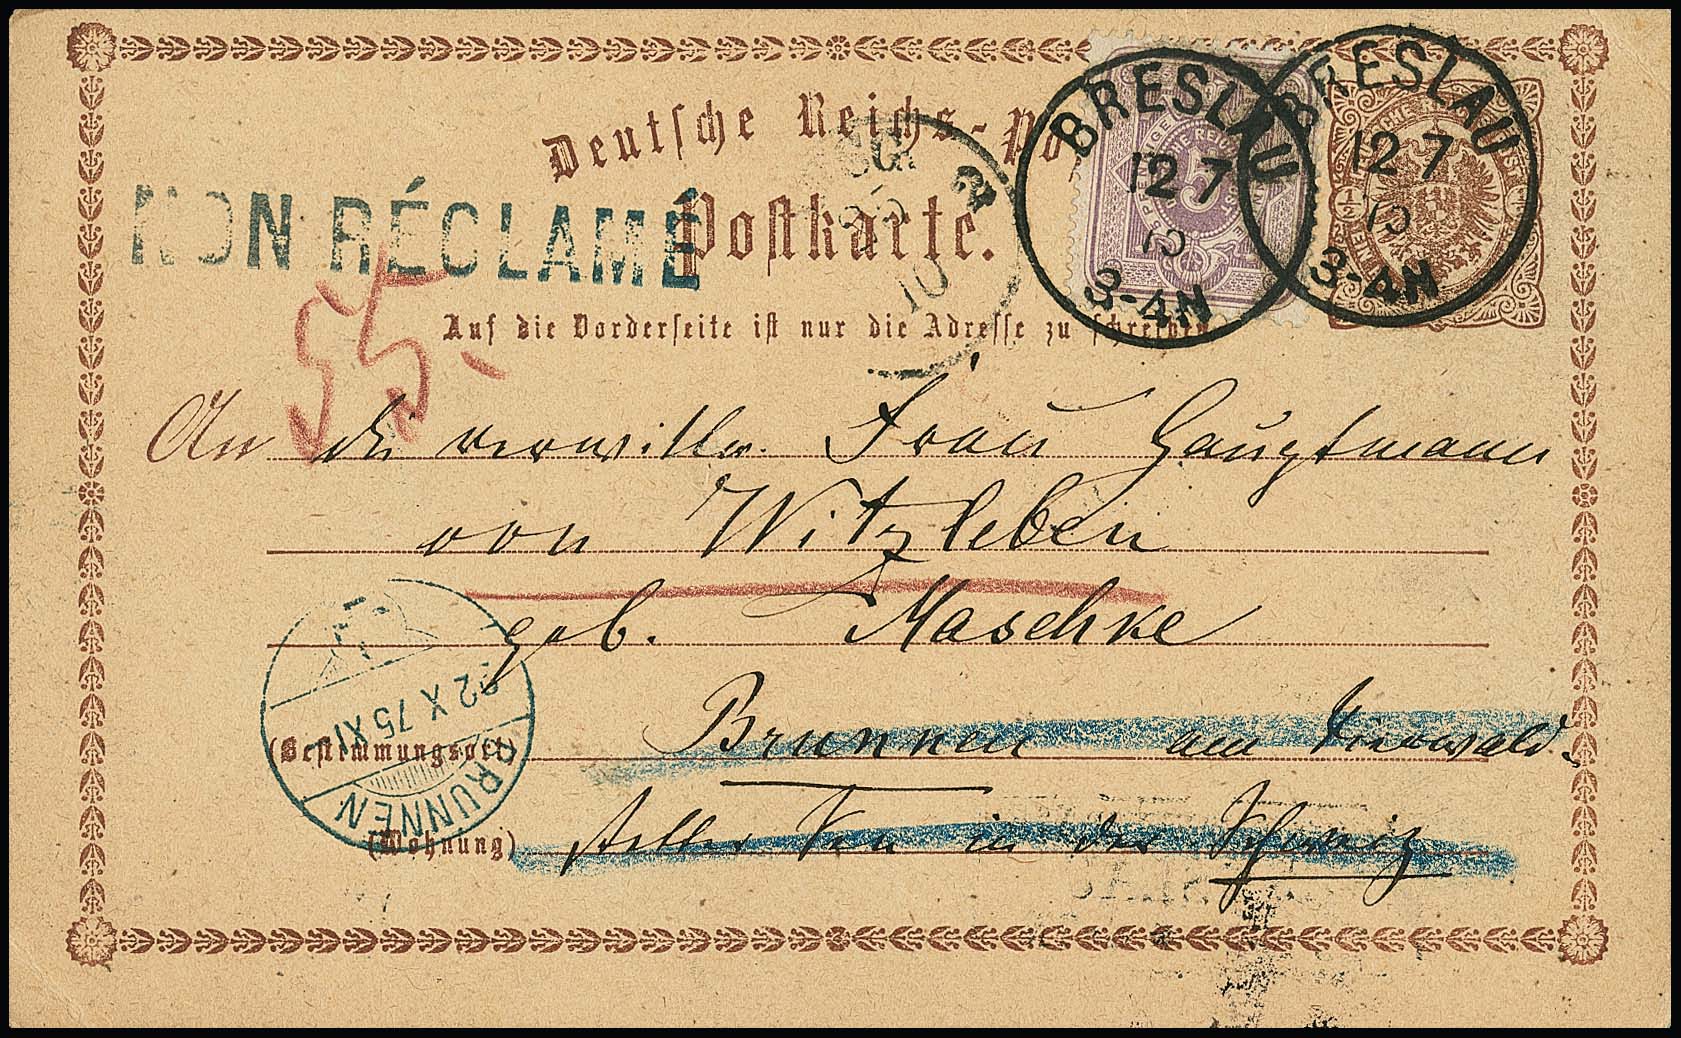 Deutsche Reichs-Po
Postkarte.
NON RÉCLAMÉ
BRESLAU
12 7
10
3-4N
BRESLAU
12 7
10
3-4N
10
55
Auf die Vorderseite ist nur die Adresse zu schreiben
An die verwittw. Frau Hauptmann
von Witzleben
geb. Maschke
(Bestimmungsort) Brunnen am Vierwald-
(Wohnung) stetter See in der Schweiz
22 X 75 XI
BRUNNEN